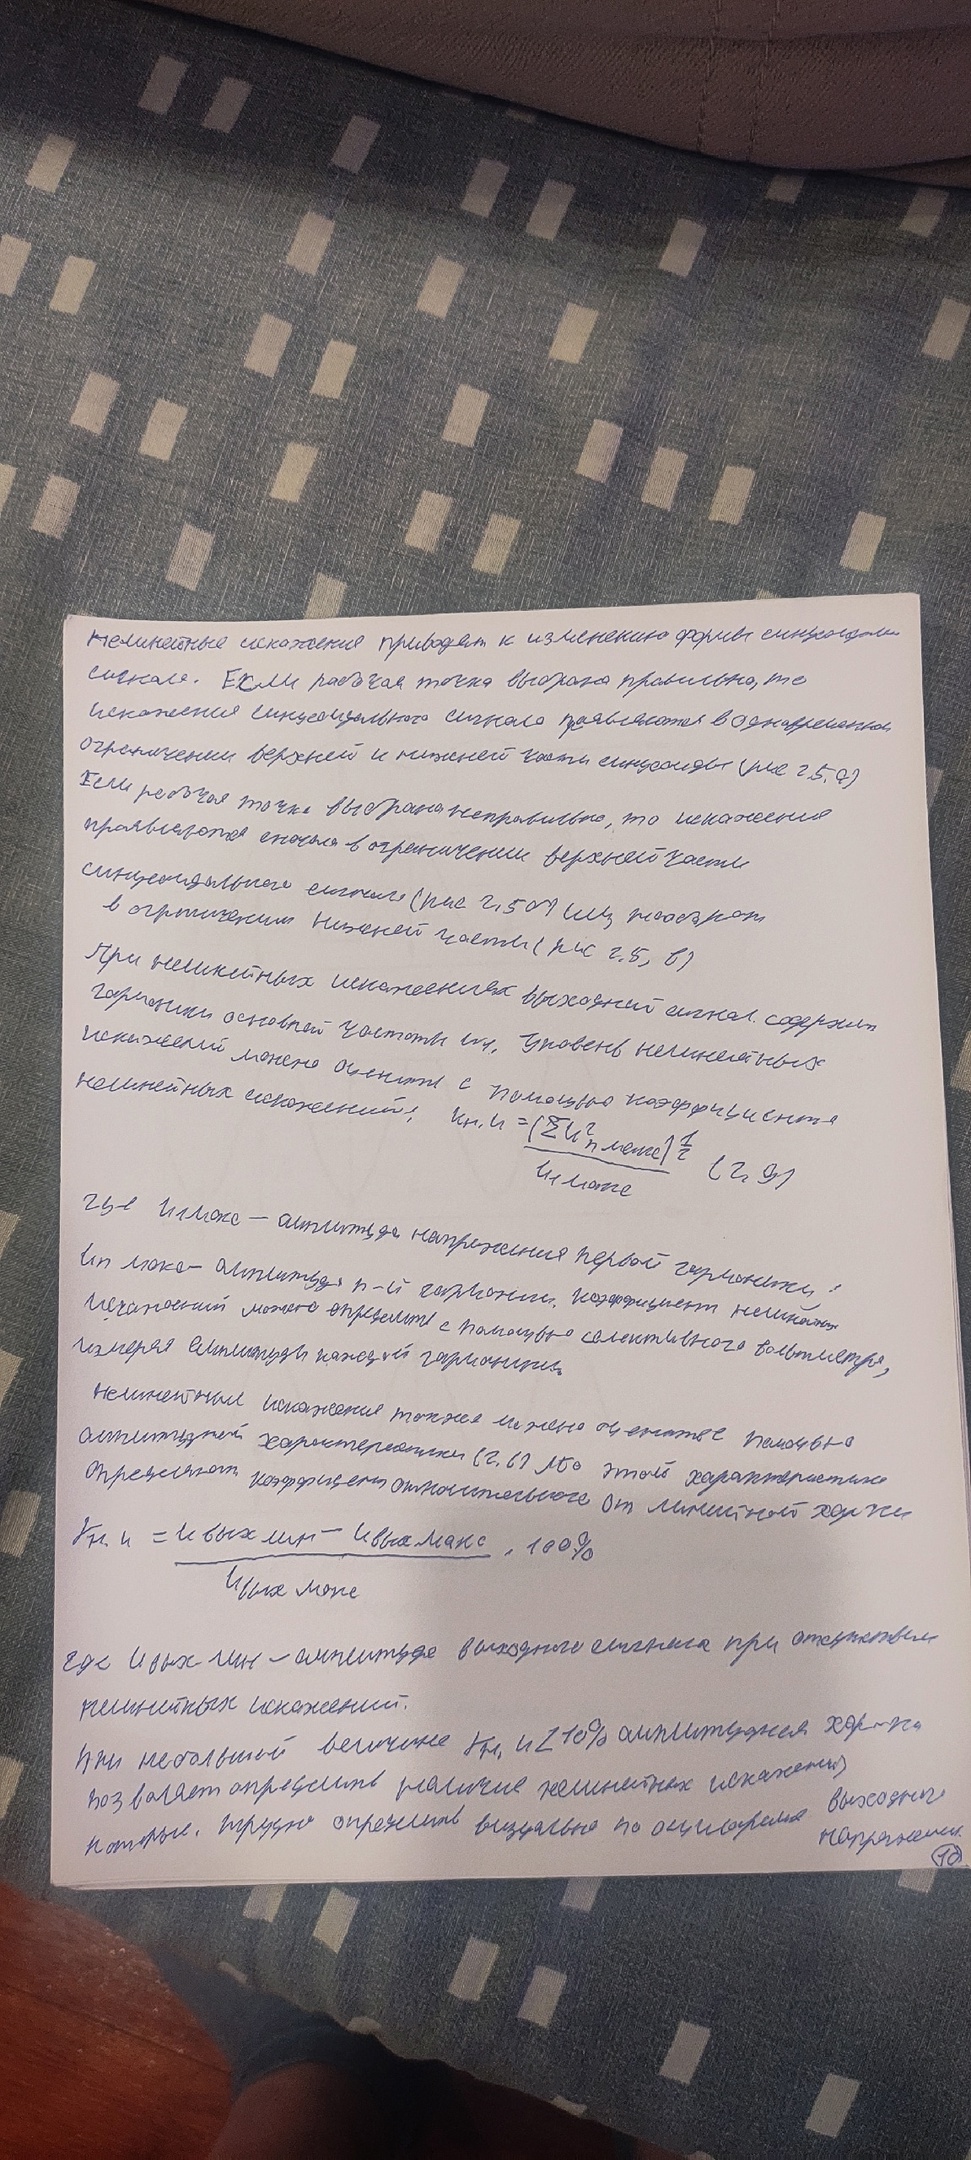 Нелинейные искажения приводят к изменению формы синусоидальн
сигнала. Если рабочая точка выбрана правильно, то
искажения синусоидального сигнала проявляются в одновременном
ограничении верхней и нижней части синусоиды (рис 2.5, а)
Если рабочая точка выбрана неправильно, то искажения
проявляются сначала в ограничении верхней части
синусоидального сигнала (рис 2,5 б) или наоборот
в ограничении нижней части (рис 2.5, в)
При нелинейных искажениях выходной сигнал содержит
гармоники основной частоты Uч. Уровень нелинейных
искажений можно оценить с помощью коэффициента
нелинейных искажений: Kн.и = (ΣU²n макс)^1/2 / U1 макс (2,9)
где U1 макс – амплитуда напряжения первой гармоники;
Un макс – амплитуда n-й гармоники. Коэффициент нелинейных
искажений можно определить с помощью селективного вольтметра,
измеряя амплитуды каждой гармоники.
Нелинейные искажения также можно оценить с помощью
амплитудной характеристики (2.6) По этой характеристике
определяют коэффициент относительного от линейной хар-ки
γн.и = Uвых лин – Uвых макс / Uвых макс . 100%
где Uвых лин – амплитуда выходного сигнала при отсутствии
нелинейных искажений.
При небольшой величине γн.и < 10% амплитудная хар-ка
позволяет определить наличие нелинейных искажений,
которые трудно определить визуально по осциллограмме выходного
напряжения.
10